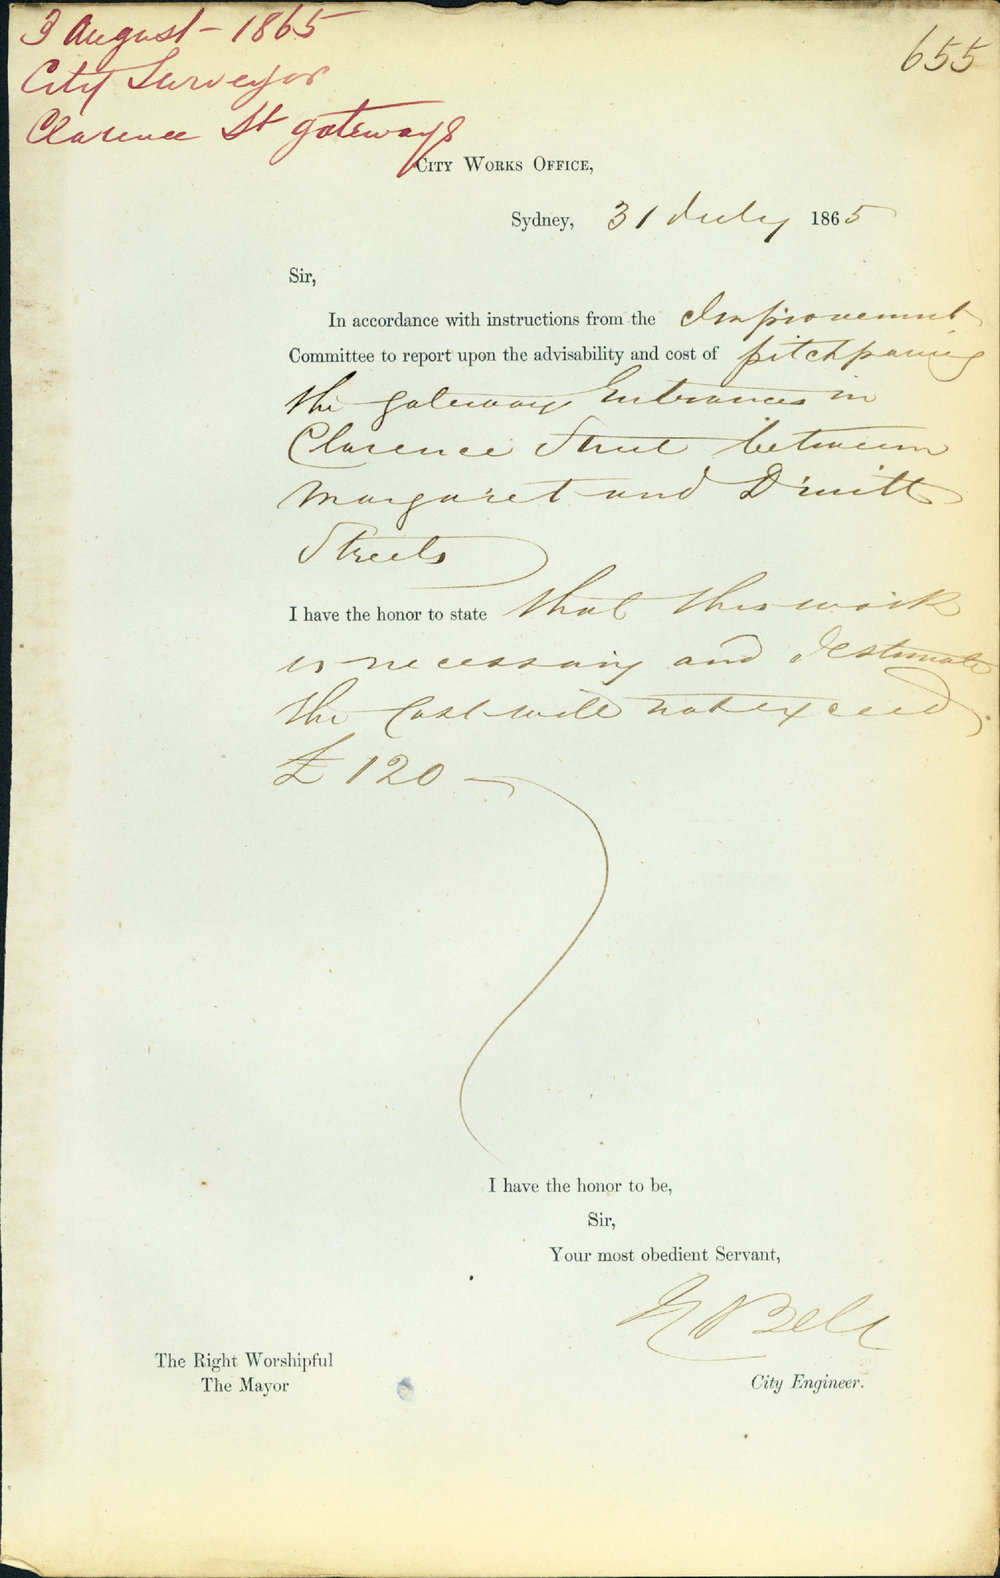 3 August - 1865
City Surveyor
Clarence St gateways
655
CITY WORKS OFFICE,
Sydney, 31 July 1865
Sir,
In accordance with instructions from the Improvement
Committee to report upon the advisability and cost of pitchpaving
the gateway Entrances in
Clarence Street between
Margaret and Druitt
Streets
I have the honor to state that this work
is necessary and I estimate
the Cost will not exceed
£120 —
I have the honor to be,
Sir,
Your most obedient Servant,
Bell
The Right Worshipful
The Mayor
City Engineer.